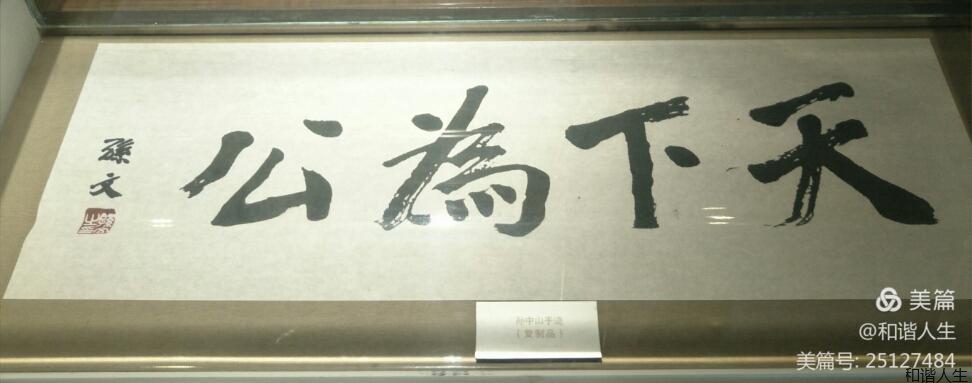 天下為公
孫文
孙中山手迹
（复制品）
美篇
@和谐人生
美篇号: 25127484
和谐人生